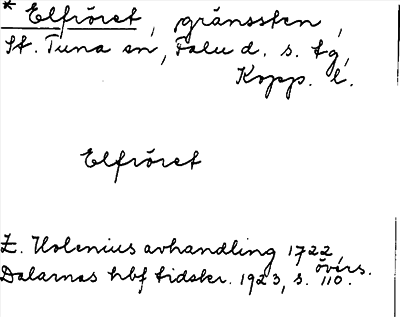 * Elfröret, gränssten,
St. Tuna sn, Falu d. s. tg,
Kopp. l.
Elfröret
E. Holenius avhandling 1722, övers.
Dalarnas hbf tidskr. 1923, s. 110.